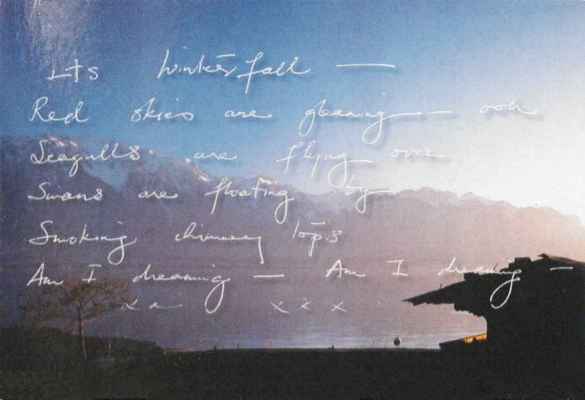 Its Winter's fall —
Red skies are gleaming — ooh
Seagulls are flying over
Swans are floating by
Smoking chimney tops
Am I dreaming — Am I dreaming —
x x x x x